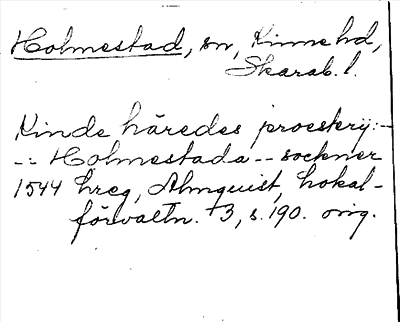 Holmestad, sn, Kinne hd,
Skarab. l.
Kinde häredes proesterij: -
-: Holmestada -- sockner
1544 hreg, Almquist, Lokal-
förvaltn. 3, s. 190. orig.